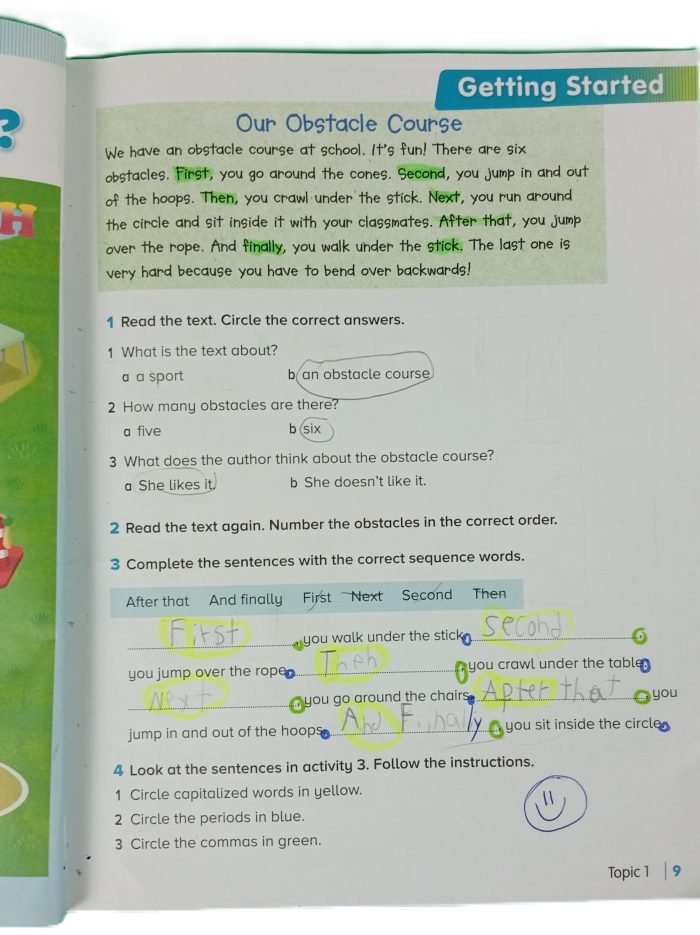 ?
H
Getting Started
Our Obstacle Course
We have an obstacle course at school. It's fun! There are six
obstacles. First, you go around the cones. Second, you jump in and out
of the hoops. Then, you crawl under the stick. Next, you run around
the circle and sit inside it with your classmates. After that, you jump
over the rope. And finally, you walk under the stick. The last one is
very hard because you have to bend over backwards!
1 Read the text. Circle the correct answers.
1 What is the text about?
a a sport b an obstacle course
2 How many obstacles are there?
a five b six
3 What does the author think about the obstacle course?
a She likes it. b She doesn't like it.
2 Read the text again. Number the obstacles in the correct order.
3 Complete the sentences with the correct sequence words.
After that And finally First Next Second Then
First, you walk under the stick. Second,
you jump over the rope. Then, you crawl under the table.
Next, you go around the chairs. After that, you
jump in and out of the hoops. And Finally, you sit inside the circle.
4 Look at the sentences in activity 3. Follow the instructions.
1 Circle capitalized words in yellow.
2 Circle the periods in blue.
3 Circle the commas in green.
Topic 1 | 9